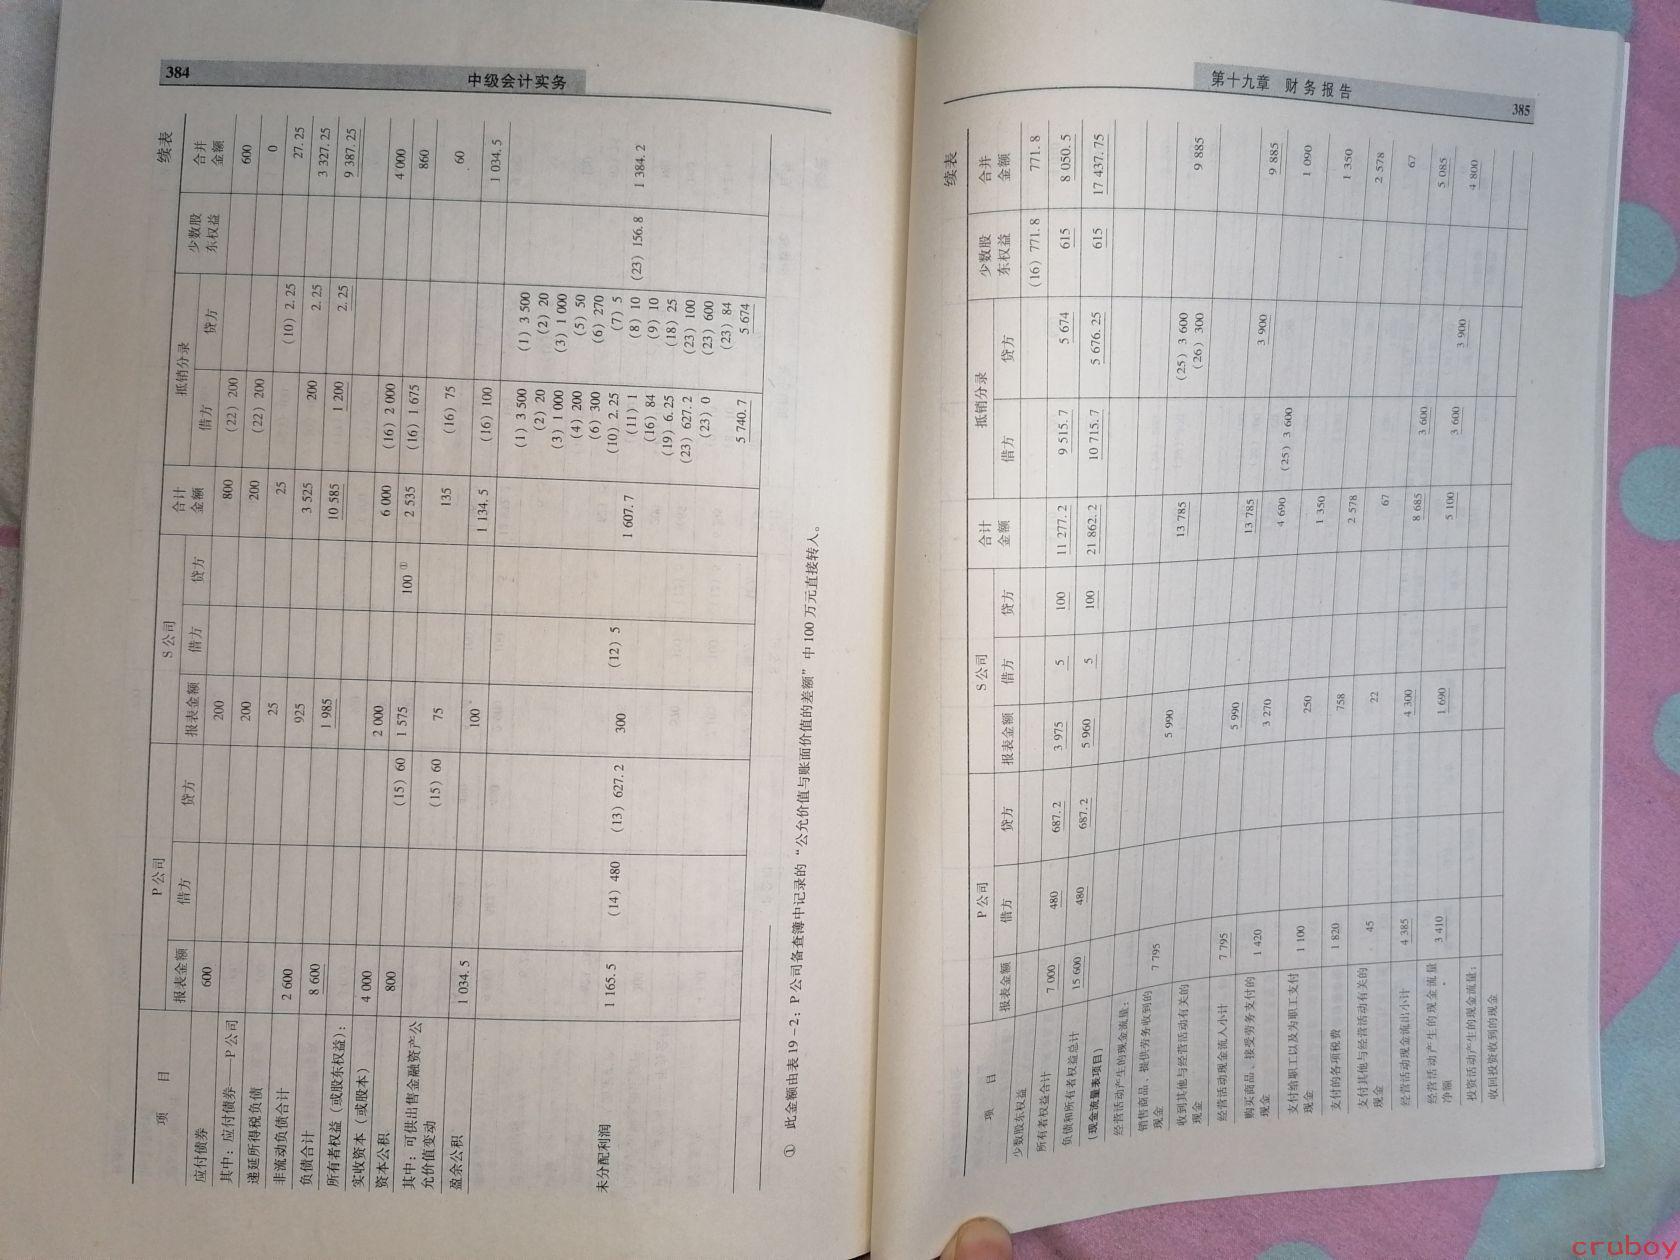 384 中级会计实务
续表
项 目 P公司 S公司 合计金额 抵销分录 少数股东权益 合并金额
报表金额 借方 贷方 报表金额 借方 贷方 借方 贷方
应付债券 600 200 800 (22) 200 600
其中：应付债券——P公司 200 200 (22) 200 0
递延所得税负债 25 25 (10) 2.25 27.25
非流动负债合计 2 600 925 3 525 200 2.25 3 327.25
负债合计 8 600 1 985 10 585 1 200 2.25 9 387.25
所有者权益（或股东权益）：
实收资本（或股本） 4 000 2 000 6 000 (16) 2 000 4 000
资本公积 800 (15) 60 1 575 100① 2 535 (16) 1 675 860
其中：可供出售金融资产公允价值变动 (15) 60 75 135 (16) 75 60
盈余公积 1 034.5 100 1 134.5 (16) 100 1 034.5
未分配利润 1 165.5 (14) 480 (13) 627.2 300 (12) 5 1 607.7
(1) 3 500 (1) 3 500
(2) 20 (2) 20
(3) 1 000 (3) 1 000
(4) 200 (5) 50
(6) 300 (6) 270
(10) 2.25 (7) 5
(11) 1 (8) 10 (23) 156.8 1 384.2
(16) 84 (9) 10
(19) 6.25 (18) 25
(23) 627.2 (23) 100
(23) 0 (23) 600
(23) 84
5 740.7 5 674
① 此金额由表19－2：P公司备查簿中记录的“公允价值与账面价值的差额”中100万元直接转入。
第十九章 财务报告 385
续表
项 目 P公司 S公司 合计金额 抵销分录 少数股东权益 合并金额
报表金额 借方 贷方 报表金额 借方 贷方 借方 贷方
少数股东权益 (16) 771.8 771.8
所有者权益合计 7 000 480 687.2 3 975 5 100 11 277.2 9 515.7 5 674 615 8 050.5
负债和所有者权益总计 15 600 480 687.2 5 960 5 100 21 862.2 10 715.7 5 676.25 615 17 437.75
（现金流量表项目）
经营活动产生的现金流量：
销售商品、提供劳务收到的现金 7 795 5 990 13 785 (25) 3 600 (26) 300 9 885
收到其他与经营活动有关的现金
经营活动现金流入小计 7 795 5 990 13 785 3 900 9 885
购买商品、接受劳务支付的现金 1 420 3 270 4 690 (25) 3 600 1 090
支付给职工以及为职工支付现金 1 100 250 1 350 1 350
支付的各项税费 1 820 758 2 578 2 578
支付其他与经营活动有关的现金 45 22 67 67
经营活动现金流出小计 4 385 4 300 8 685 3 600 5 085
经营活动产生的现金流量净额 3 410 1 690 5 100 3 600 3 900 4 800
投资活动产生的现金流量：
收回投资收到的现金
cruboy